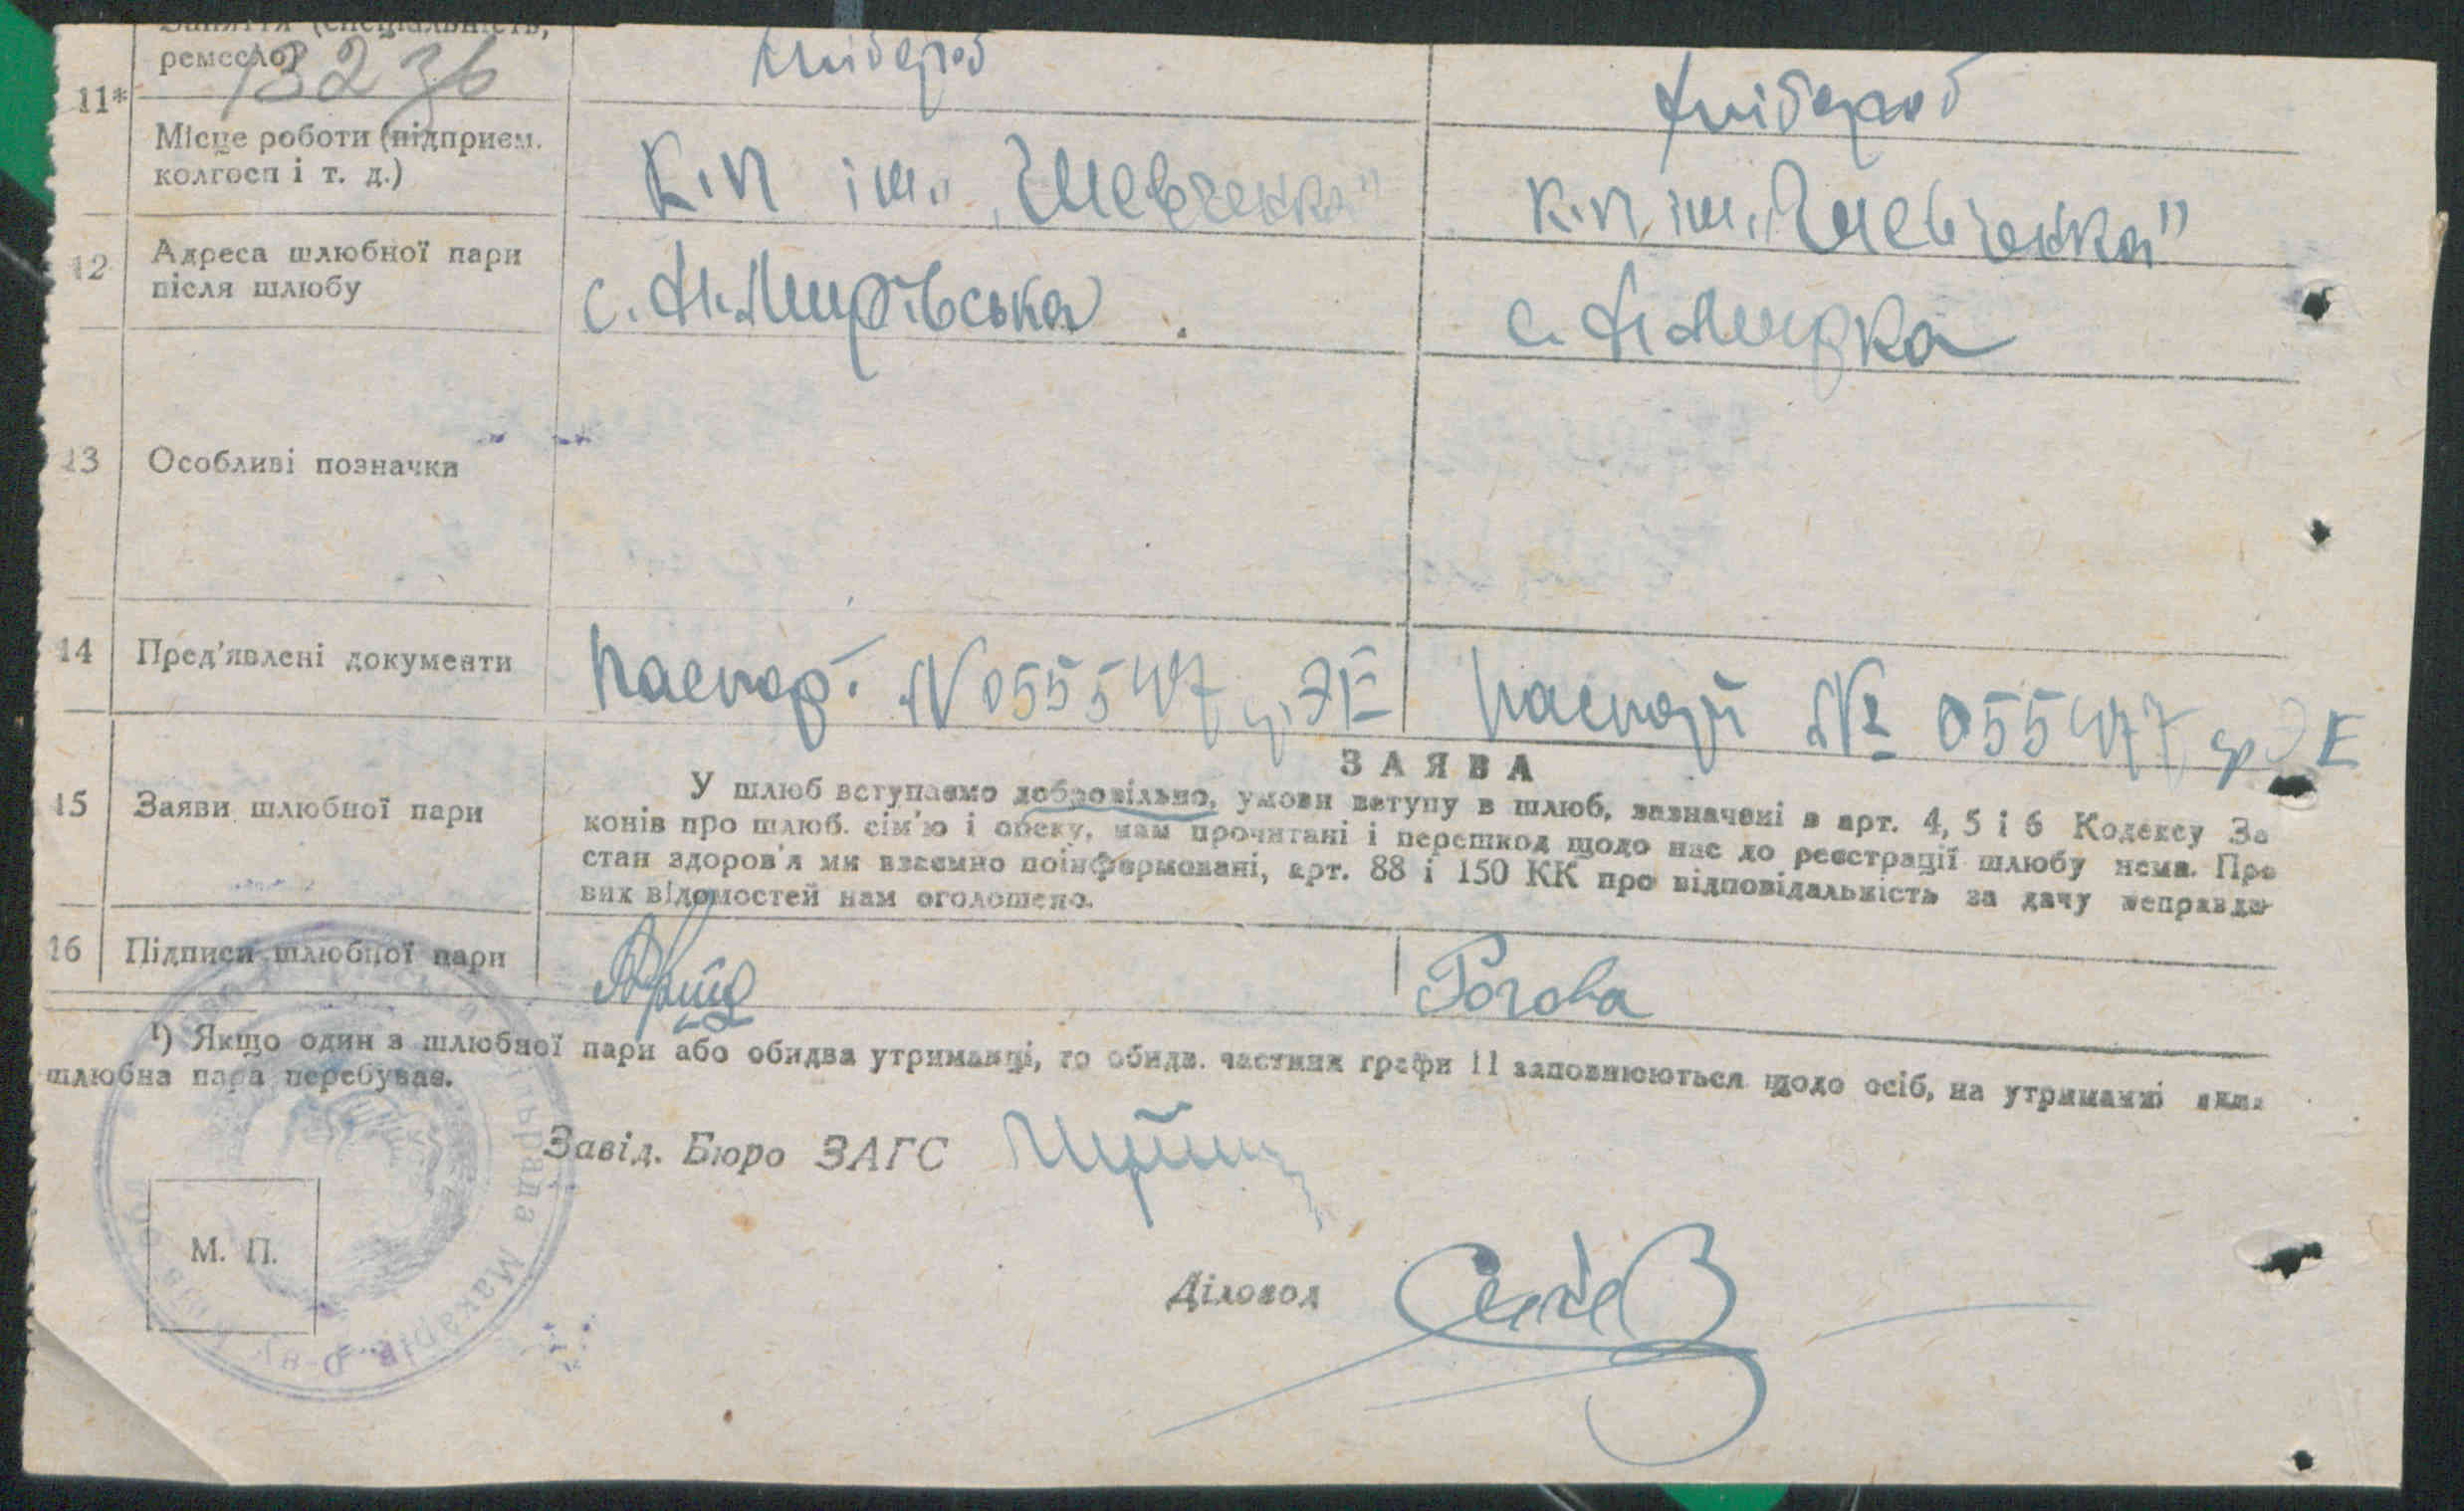 Заняття (спеціальність,
ремесло)
132 зв
хлібороб
хлібороб
11*
Місце роботи (підприєм.
колгосп і т. д.)
К.п ім. „Шевченка"
к.п. ім. „Шевченка"
12
Адреса шлюбної пари
після шлюбу
с. Н.Мирівська
с.
13
Особливі позначки
14
Пред'явлені документи
паспор. N 055547 ЭЕ
паспорт № 055477 ЭЕ
ЗАЯВА
15
Заяви шлюбної пари
У шлюб вступаємо добровільно, умови вступу в шлюб, зазначені в арт. 4, 5 і 6 Кодексу За
конів про шлюб. сім'ю і опеку, нам прочитані і перешкод щодо нас до реєстрації шлюбу нема. Про
стан здоров'я ми взаємно поінформовані, арт. 88 і 150 КК про відповідальність за дачу неправди-
вих відомостей нам оголошено.
16
Підписи шлюбної пари
Рогова
¹) Якщо один з шлюбної пари або обидва утриманці, то обидв. частини графи 11 заповнюються щодо осіб, на утриманні яких
шлюбна пара перебуває.
Завід. Бюро ЗАГС
М. П.
Діловод
льрада Макарів Р-ну